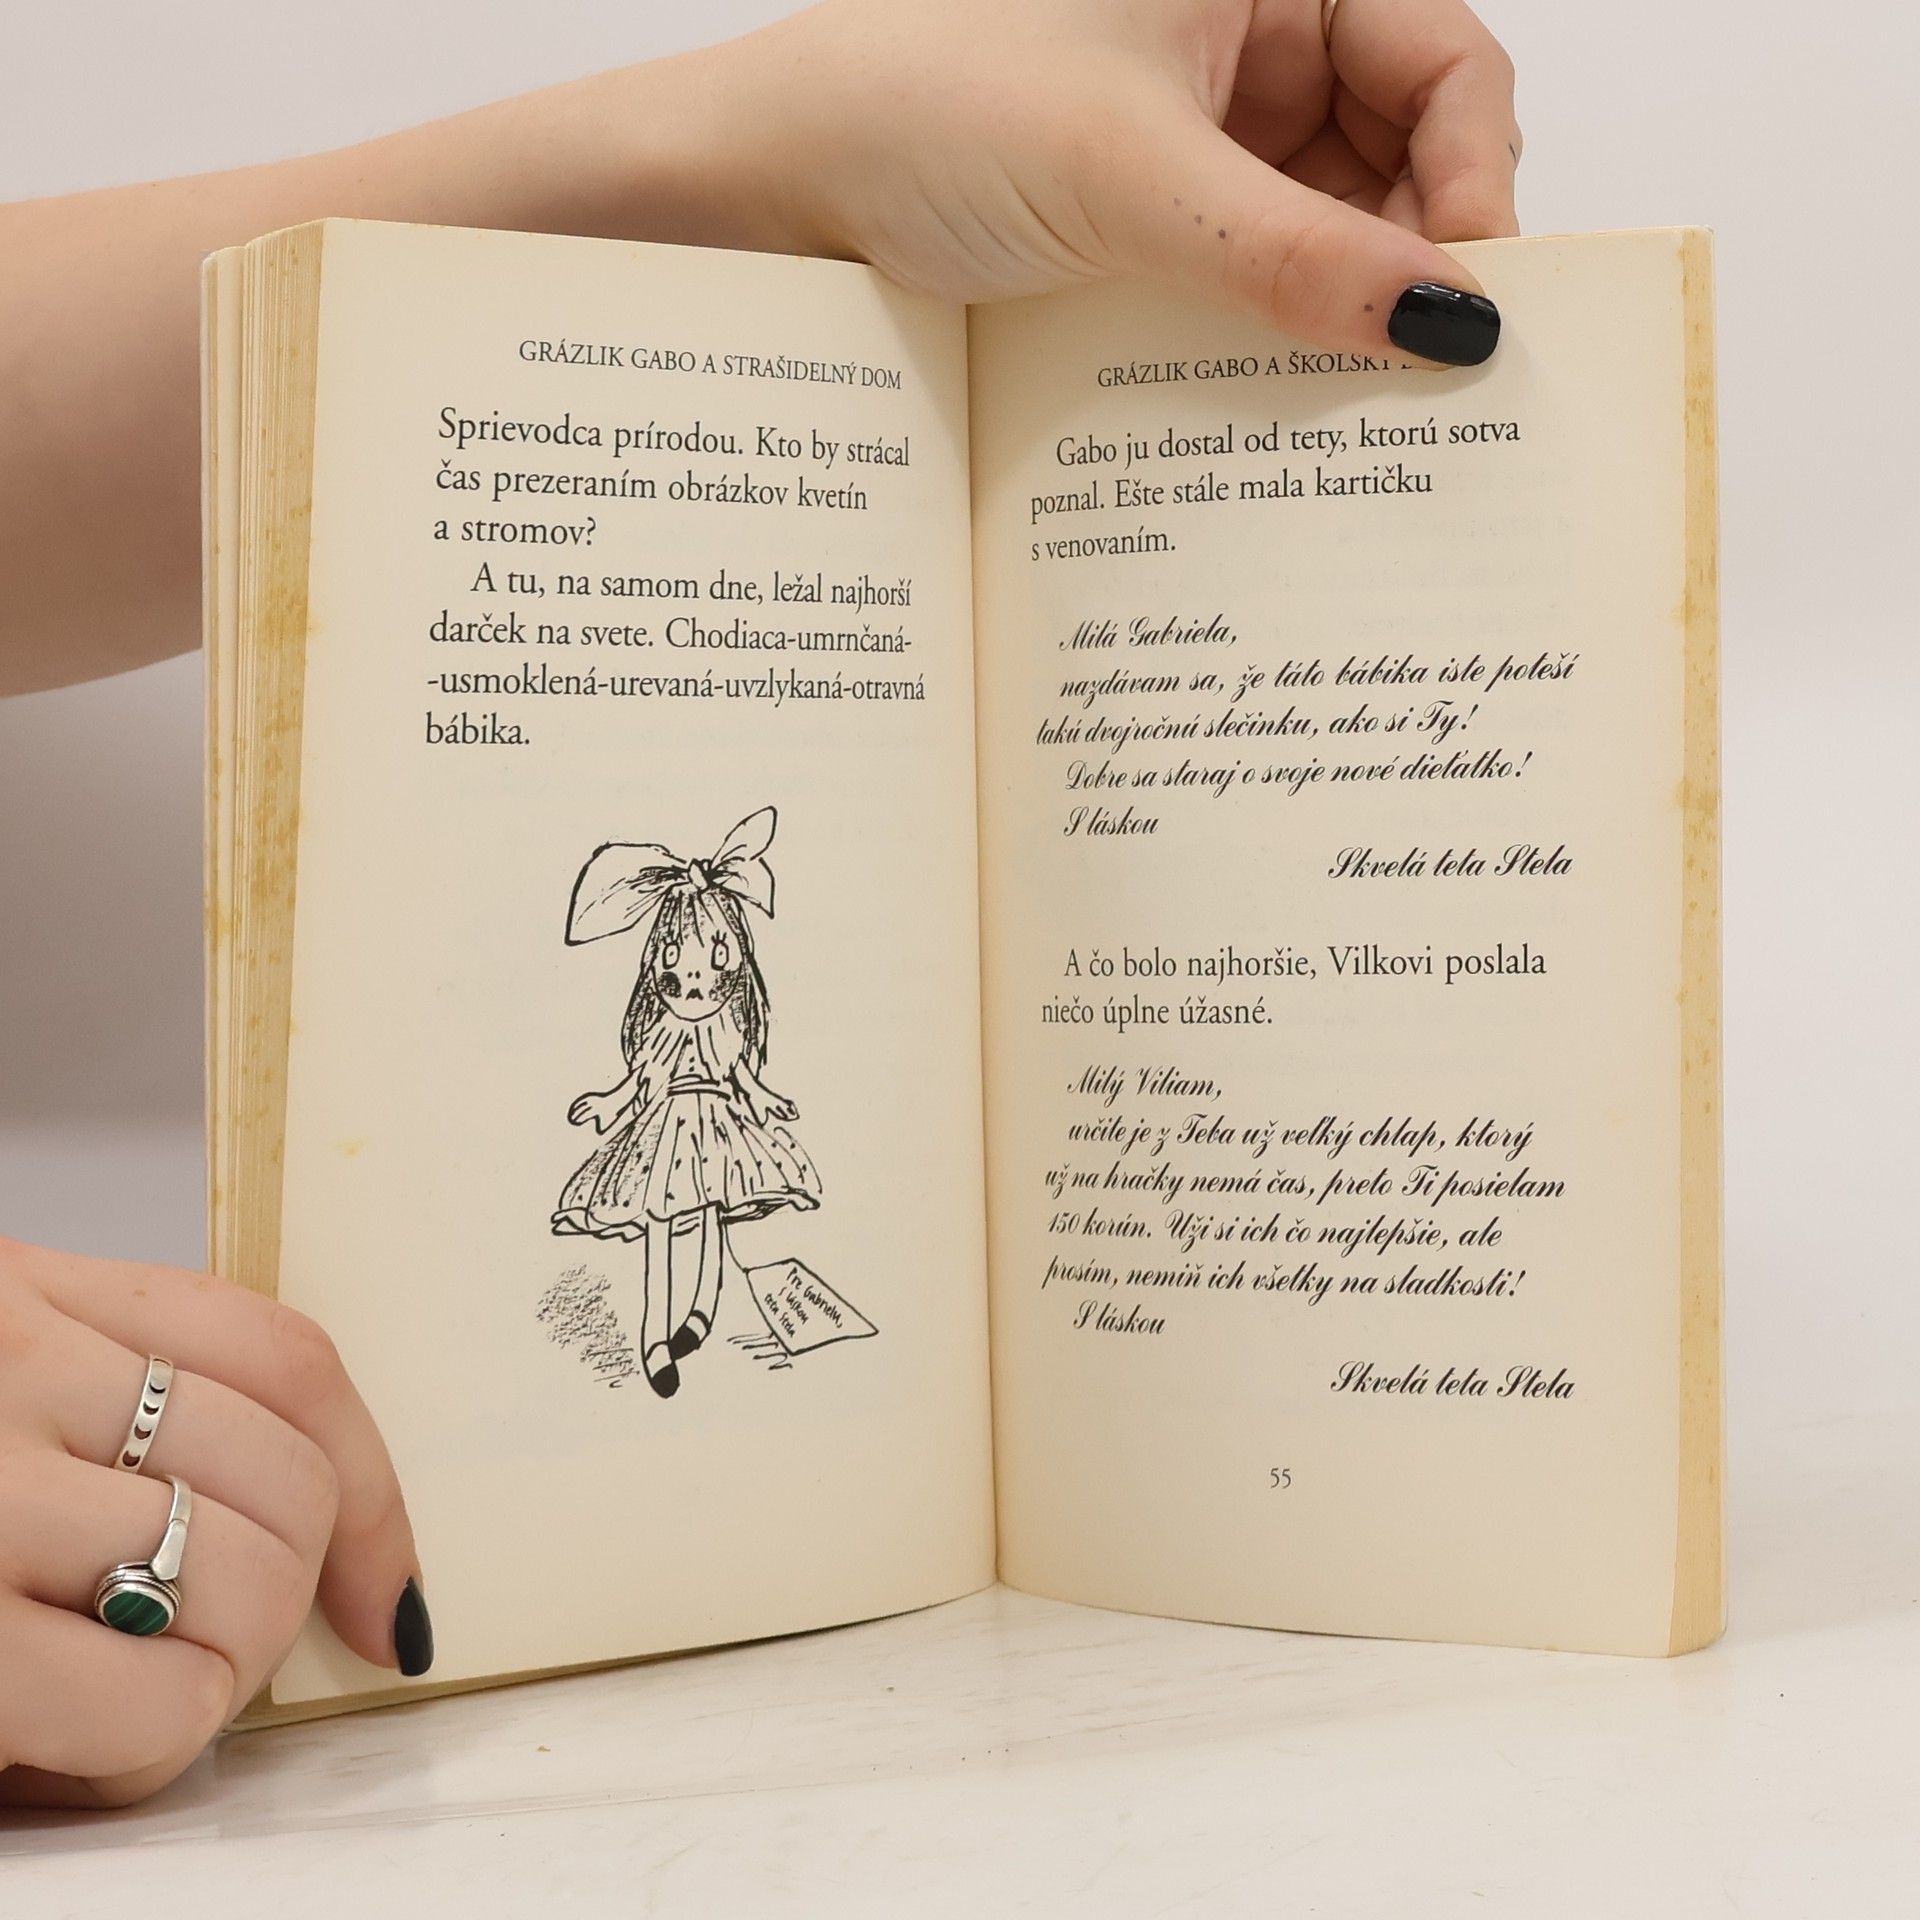 GRÁZLIK GABO A STRAŠIDELNÝ DOM
Sprievodca prírodou. Kto by strácal
čas prezeraním obrázkov kvetín
a stromov?
A tu, na samom dne, ležal najhorší
darček na svete. Chodiaca-umrnčaná-
-usmoklená-urevaná-uvzlykaná-otravná
bábika.
Pre Gabrielu,
s láskou
teta Stela
GRÁZLIK GABO A ŠKOLSKÝ
Gabo ju dostal od tety, ktorú sotva
poznal. Ešte stále mala kartičku
s venovaním.
Milá Gabriela,
nazdávam sa, že táto bábika iste poteší
takú dvojročnú slečinku, ako si Ty!
Dobre sa staraj o svoje nové dieťatko!
S láskou
Skvelá teta Stela
A čo bolo najhoršie, Vilkovi poslala
niečo úplne úžasné.
Milý Viliam,
určite je z Teba už veľký chlap, ktorý
už na hračky nemá čas, preto Ti posielam
150 korún. Uži si ich čo najlepšie, ale
prosím, nemiň ich všetky na sladkosti!
S láskou
Skvelá teta Stela
55